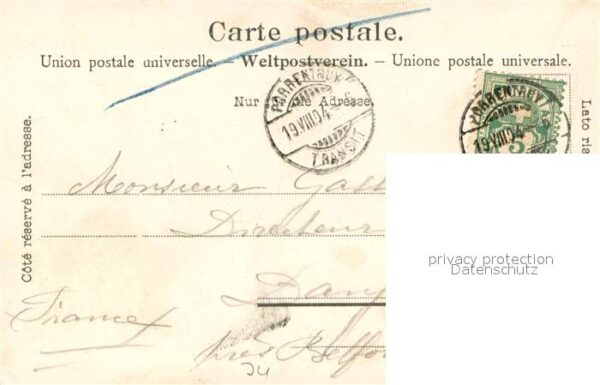 Carte postale.
Union postale universelle. – Weltpostverein. – Unione postale universale.
Nur für die Adresse.
PORRENTRUY
19.VIII.04
TRANSIT
PORRENTRUY
19.VIII.04
5
Côté réservé à l'adresse.
Lato ris
Monsieur Gast
Directeur
Dan
France
près Belfo
34
privacy protection
Datenschutz